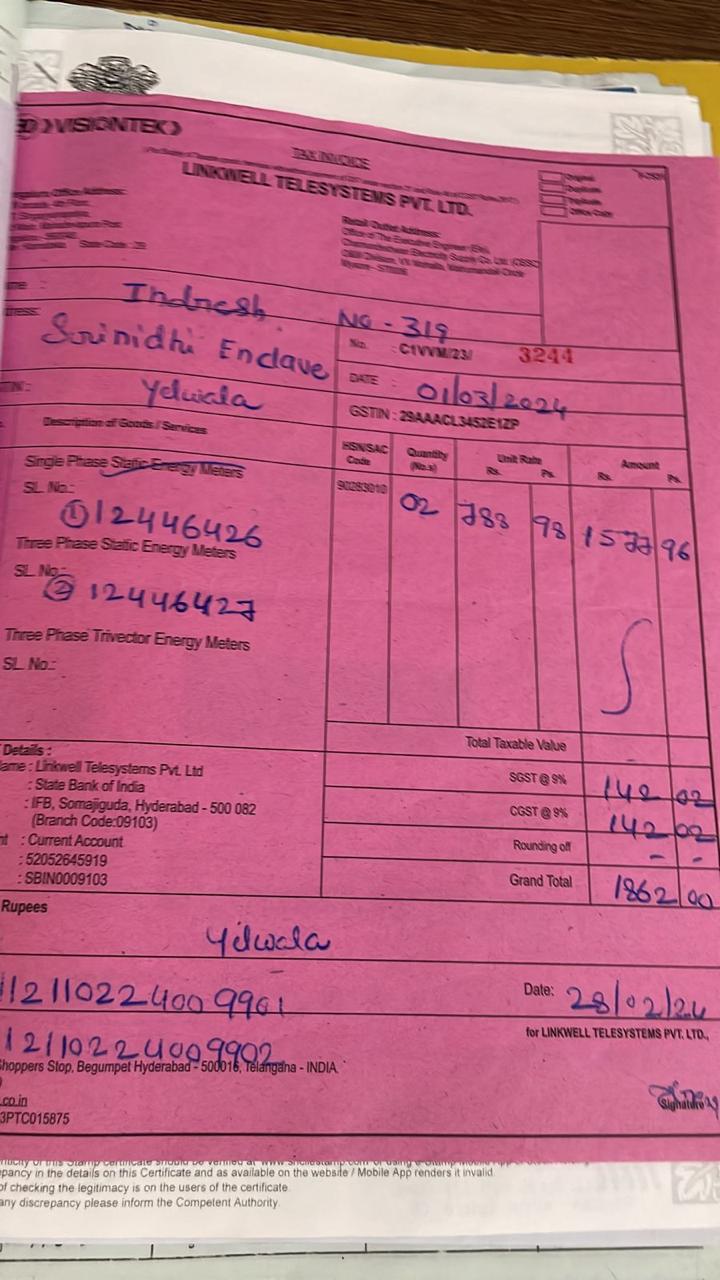 VISIONTEK
TAX INVOICE
LINKWELL TELESYSTEMS PVT. LTD.
Original
Duplicate
Triplicate
Office Copy
Office Address:
State Code : 29
Retail Outlet Address:
Office of The Executive Engineer (Ele),
Chamundeshwari Electricity Supply Co. Ltd. (CESC)
Indresh
NO - 319
Srinidhi Enclave
No. : C1VVM/23/ 3244
Yelwala
DATE : 01/03/2024
GSTIN : 29AAACL3452E1ZP
Description of Goods / Services
HSN/SAC Code
Quantity (No.s)
Unit Rate Rs. Ps.
Amount Rs. Ps.
Single Phase Static Energy Meters
90283010 02 788 98 1577 96
SL. No.:
① 12446426
Three Phase Static Energy Meters
SL. No.:
② 12446427
Three Phase Trivector Energy Meters
SL. No.:
Total Taxable Value -
Details :
ame : Linkwell Telesystems Pvt. Ltd
SGST @ 9% 142 02
: State Bank of India
: IFB, Somajiguda, Hyderabad - 500 082
CGST @ 9% 142 02
(Branch Code:09103)
nt : Current Account
Rounding off - -
: 52052645919
: SBIN0009103
Grand Total 1862 00
Rupees
Yelwala
11211022400 9901
Date: 28/02/24
for LINKWELL TELESYSTEMS PVT. LTD.,
1211022400 9902
Shoppers Stop, Begumpet Hyderabad - 500016, Telangana - INDIA
.co.in
Signature
3PTC015875
pancy in the details on this Certificate and as available on the website / Mobile App renders it invalid.
of checking the legitimacy is on the users of the certificate
any discrepancy please inform the Competent Authority.